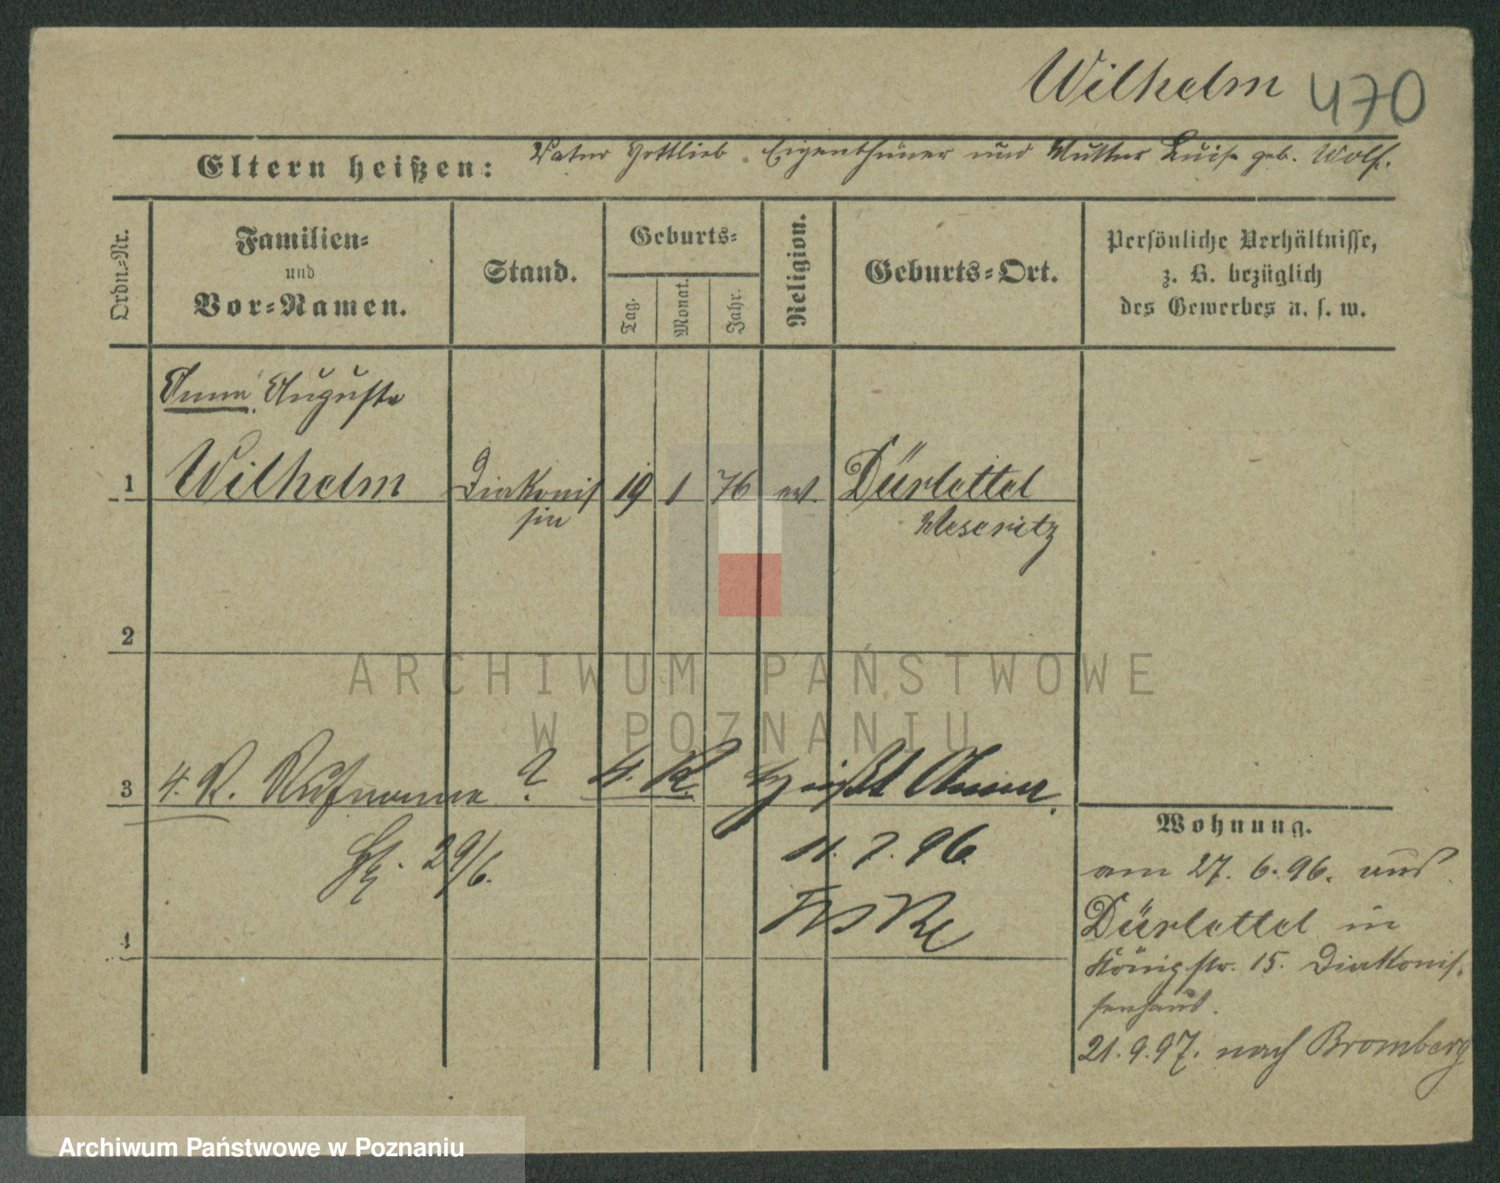 Wilhelm 470
Eltern heißen: Vater Gottlieb Eigenthümer und Mutter Luise geb. Wolf.
Ordn.-Nr.
Familien-
und
Vor-Namen.
Stand.
Geburts-
Tag.
Monat.
Jahr.
Religion.
Geburts-Ort.
Persönliche Verhältnisse,
z. B. bezüglich
des Gewerbes u. s. w.
Anna Auguste
1 Wilhelm Diakonis 19 1 76 ev. Dürlettel
sin Meseritz
2
3 4. R. Rufname ? 4. R. heißt Anna.
29/6. 11.7.96.
4
Wohnung.
am 27.6.96. aus
Dürlettel in
Königstr. 15. Diakonis-
senhaus.
21.9.97. nach Bromberg
ARCHIWUM PAŃSTWOWE
W POZNANIU
Archiwum Państwowe w Poznaniu